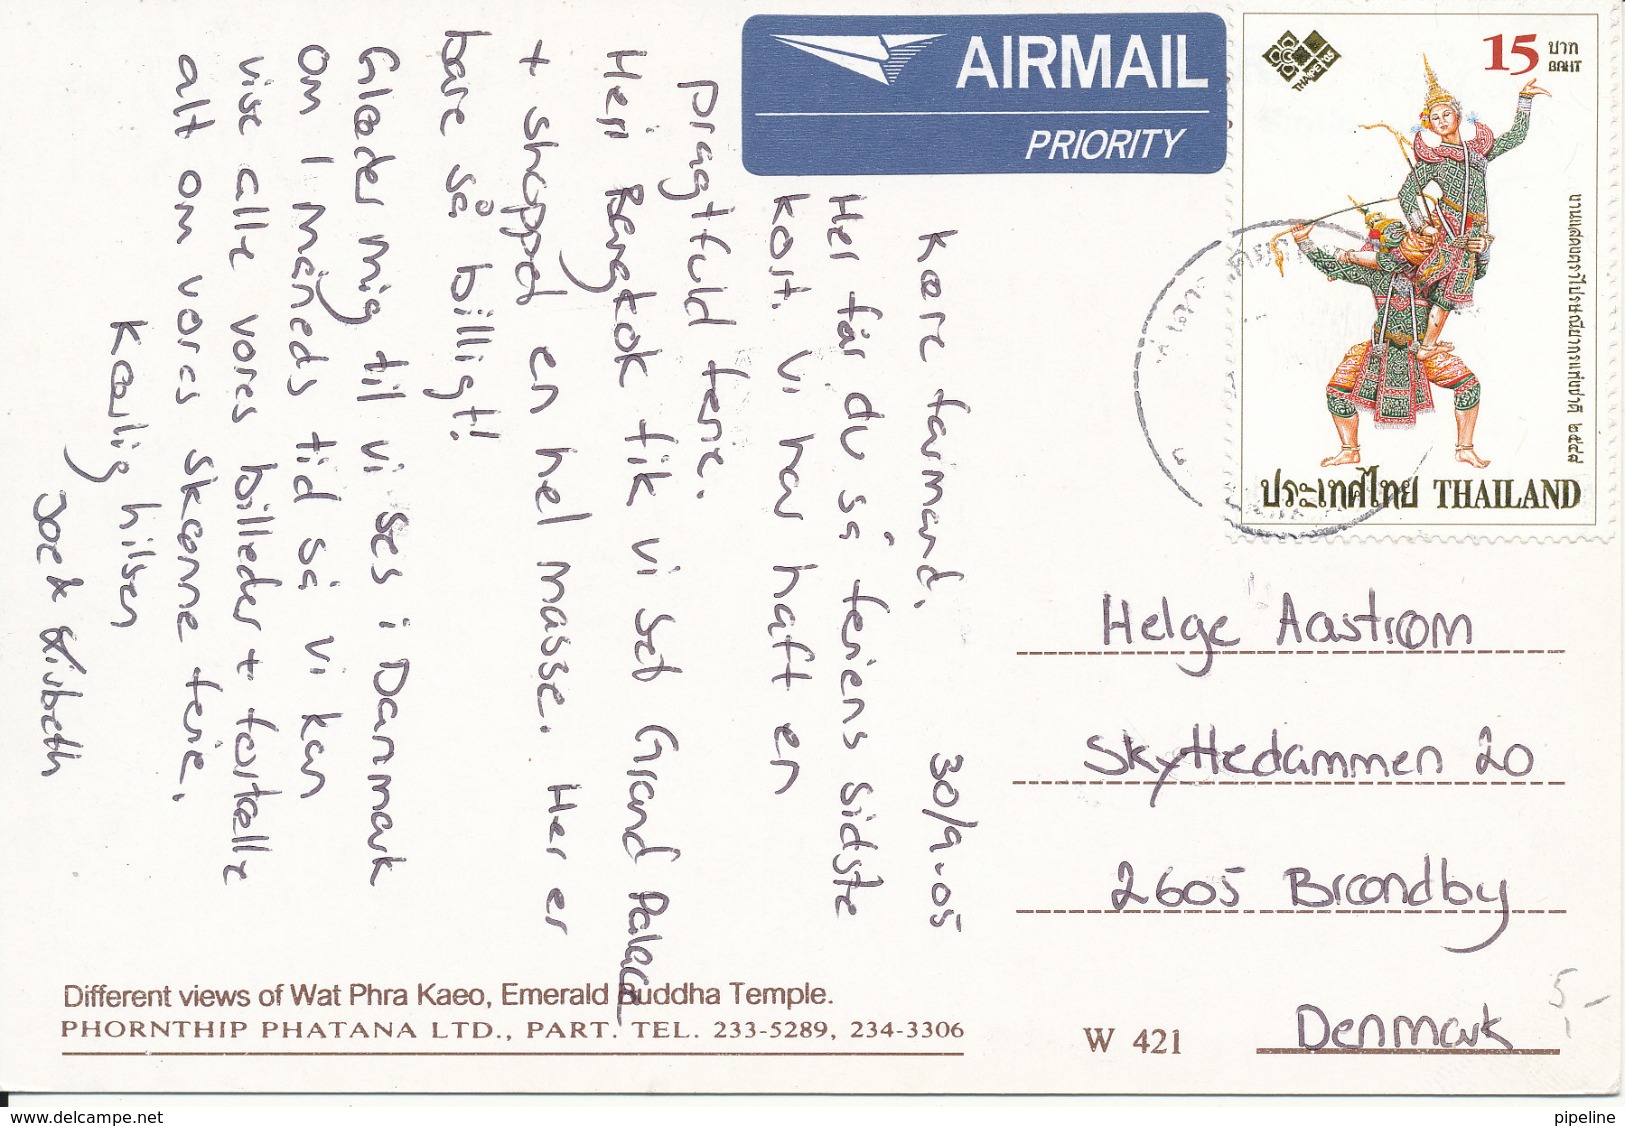 AIRMAIL
PRIORITY
THAIPEX 03
15 บาท
BAHT
ประเทศไทย THAILAND
Kære farmand, 30/9-05
Her får du så feriens sidste
kort. Vi har haft en
pragtfuld ferie.
Her i Bangkok fik vi set Grand Palace
+ shoppet en hel masse. Her er
bare så billigt!
Glæder mig til vi ses i Danmark
om 1 måneds tid så vi kan
vise alle vores billeder + fortælle
alt om vores skønne ferie.
Kærlig hilsen
Joe & Lisbeth
Helge Aastrøm
Skyttedammen 20
2605 Brøndby
Denmark
5,-
Different views of Wat Phra Kaeo, Emerald Buddha Temple.
PHORNTHIP PHATANA LTD., PART. TEL. 233-5289, 234-3306
W 421
www.delcampe.net
pipeline